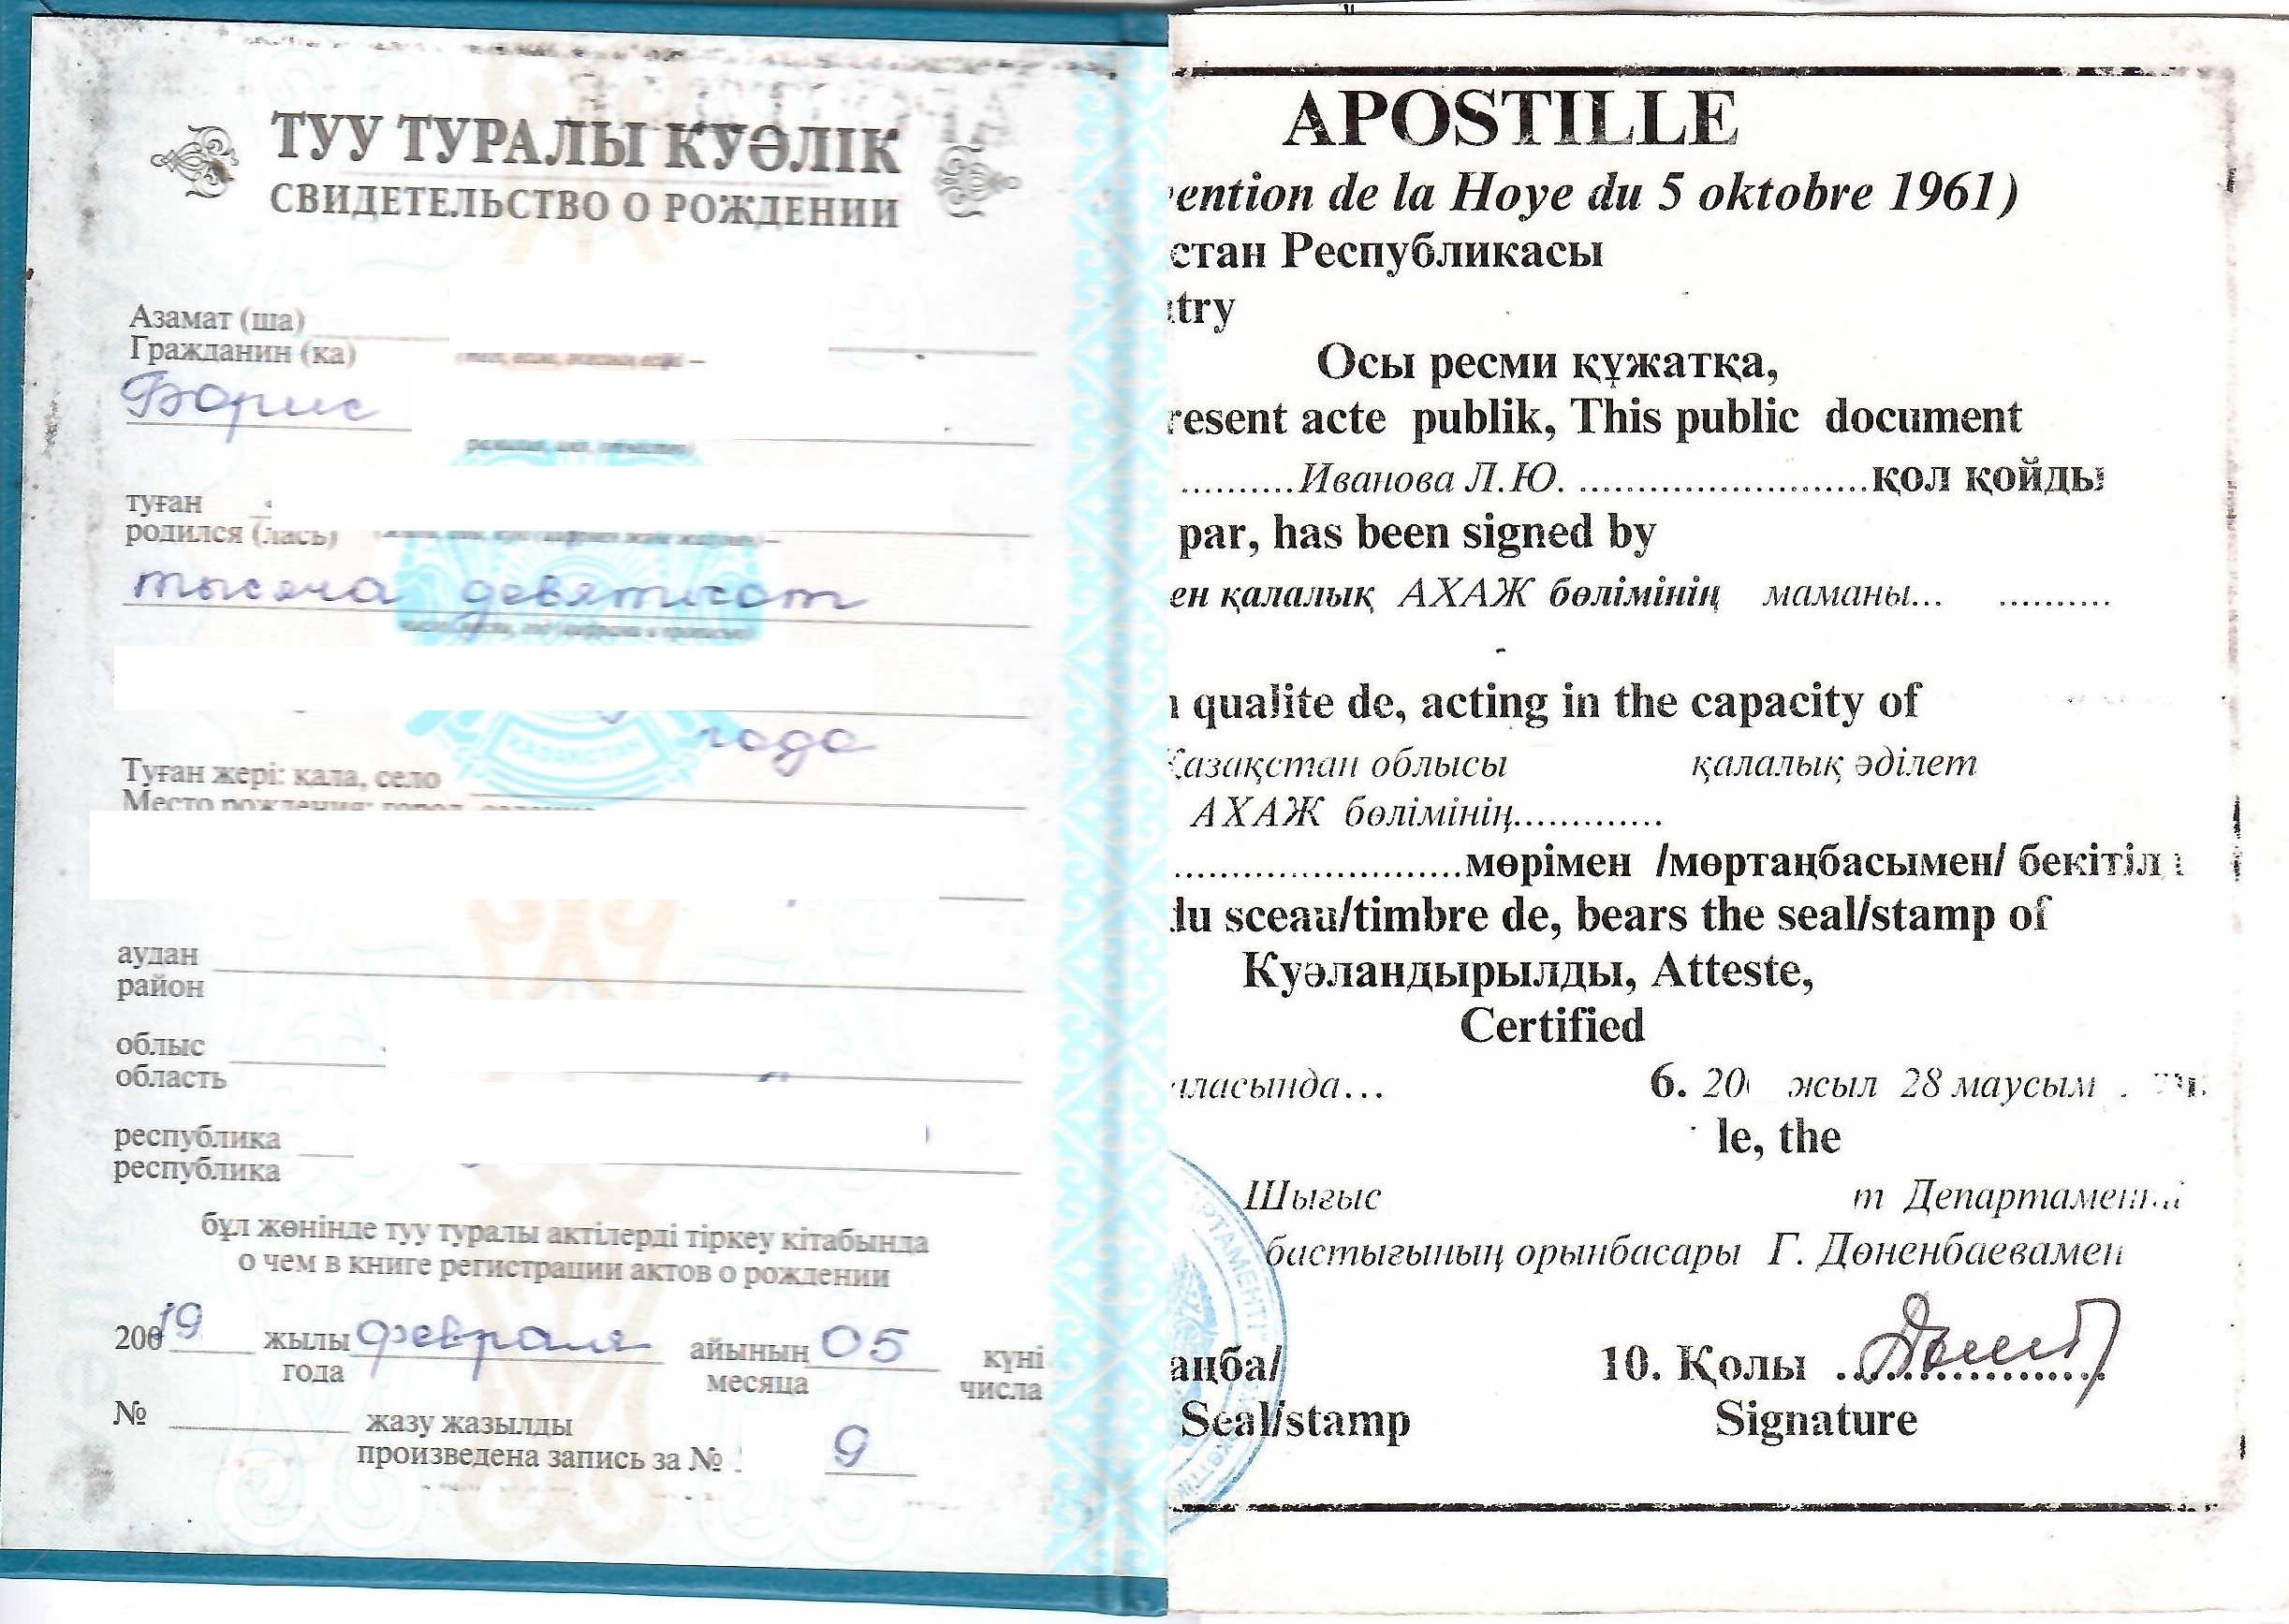 ТУУ ТУРАЛЫ КУӘЛІК
СВИДЕТЕЛЬСТВО О РОЖДЕНИИ
Азамат (ша)
Гражданин (ка)
Борис
туған
родился (лась)
тысяча девятисот
ҚАЗАҚСТАН
года
Туған жері: қала, село
Место рождения: город, селение
аудан
район
облыс
область
республика
республика
бұл жөнінде туу туралы актілерді тіркеу кітабында
о чем в книге регистрации актов о рождении
200 19 жылы февраля айының 05 күні
года месяца числа
№ жазу жазылды
произведена запись за № 9
APOSTILLE
vention de la Hoye du 5 oktobre 1961)
стан Республикасы
ntry
Осы ресми құжатқа,
resent acte publik, This public document
..........Иванова Л.Ю. ..........................қол қойды
par, has been signed by
ен қалалық АХАЖ бөлімінің маманы... ..........
qualite de, acting in the capacity of
Қазақстан облысы қалалық әділет
АХАЖ бөлімінің.............
..........................мөрімен /мөртаңбасымен/ бекітіл
du sceau/timbre de, bears the seal/stamp of
Куәландырылды, Atteste,
Certified
аласында... 6. 20 жыл 28 маусым .
le, the
Шығыс т Департаменті
бастығының орынбасары Г. Дөненбаевамен
аңба/ 10. Қолы ..................
Seal/stamp Signature